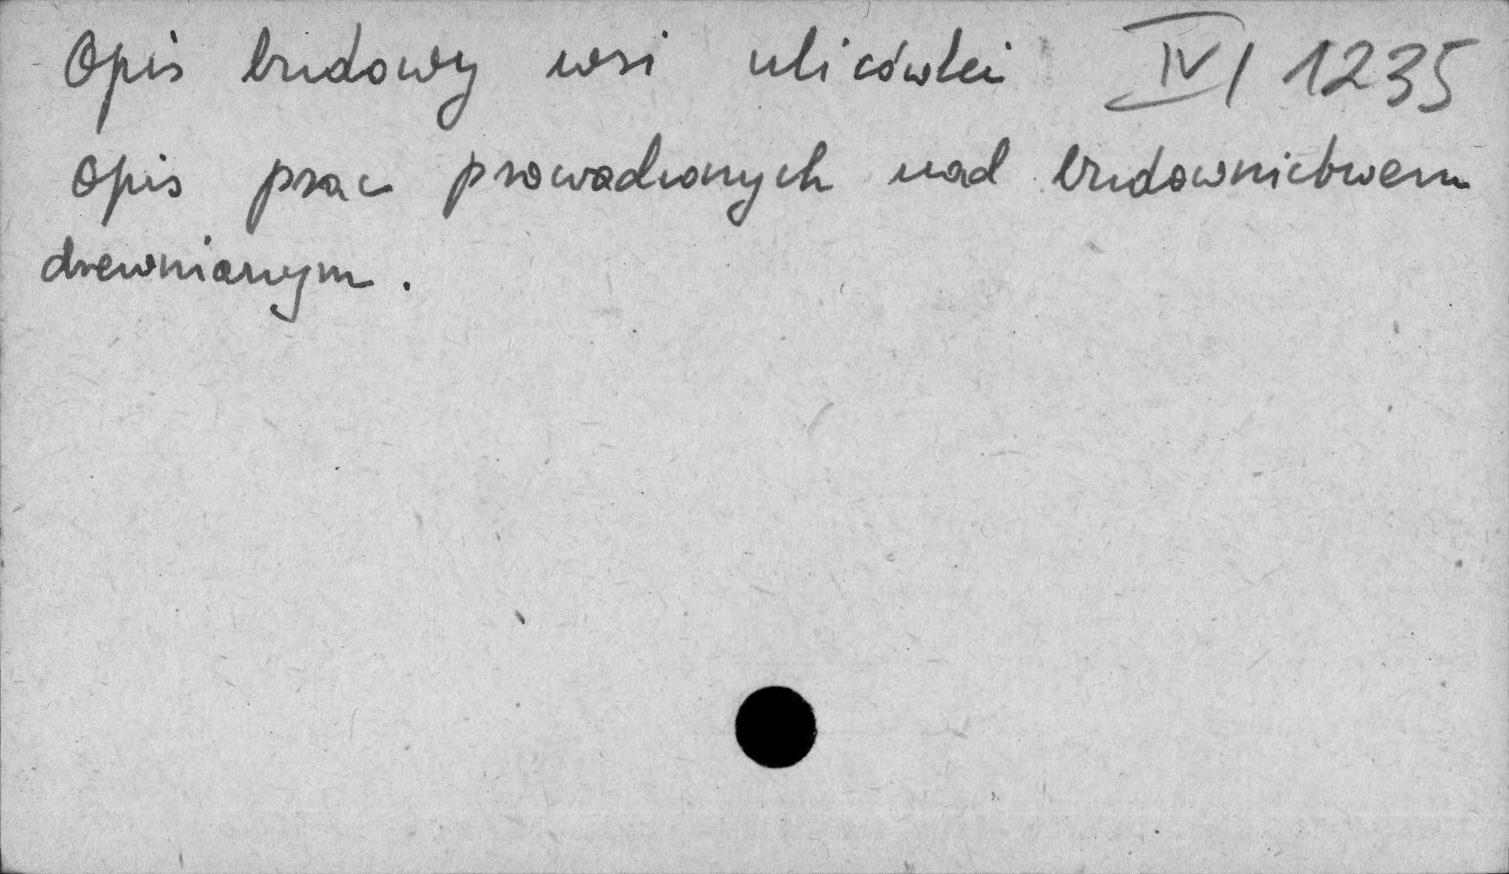 Opis budowy wsi ulicówki IV/1235
Opis prac prowadzonych nad budownictwem
drewnianym.